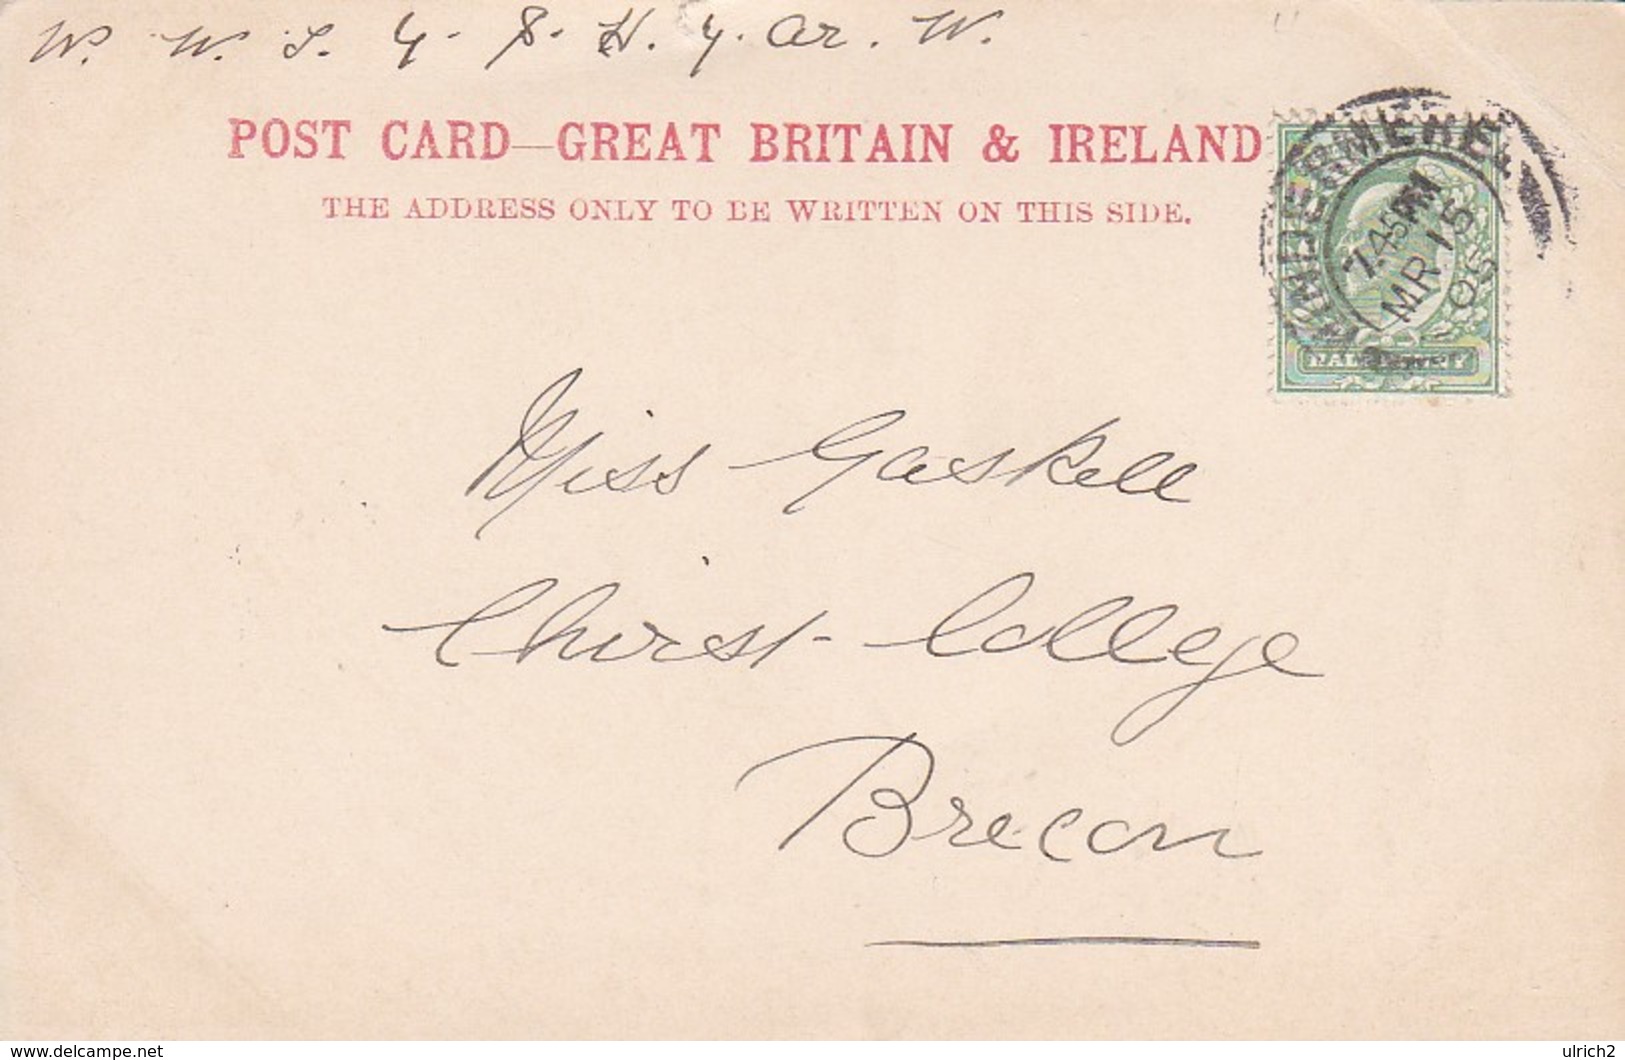 W. W. S. Y. S. H. Y. Ar. W.
POST CARD—GREAT BRITAIN & IRELAND
THE ADDRESS ONLY TO BE WRITTEN ON THIS SIDE.
WINDERMERE
7.45PM
MR 15
05
HALFPENNY
Miss Gaskell
Christ College
Brecon
delcampe.net
ulrich2